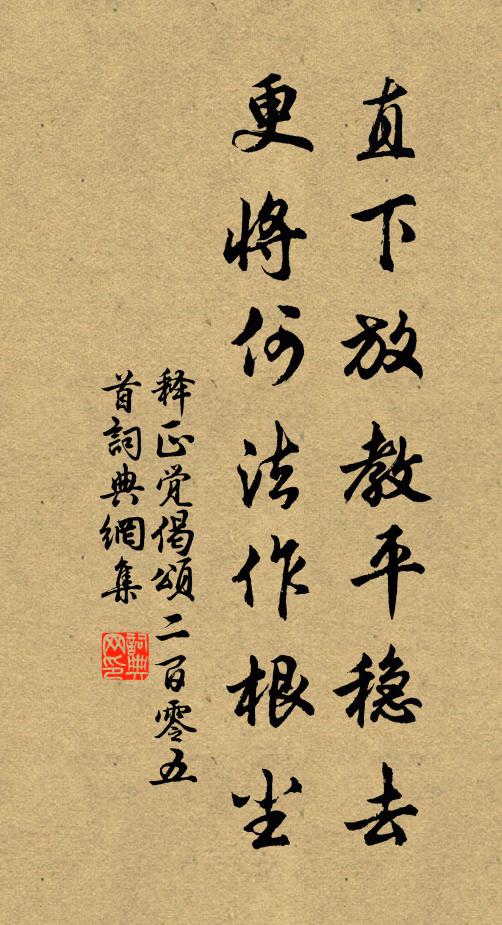 直下放教平穏去
更将何法作根尘
释正觉偈頌二百零五
首詞典網集
詞典
网印